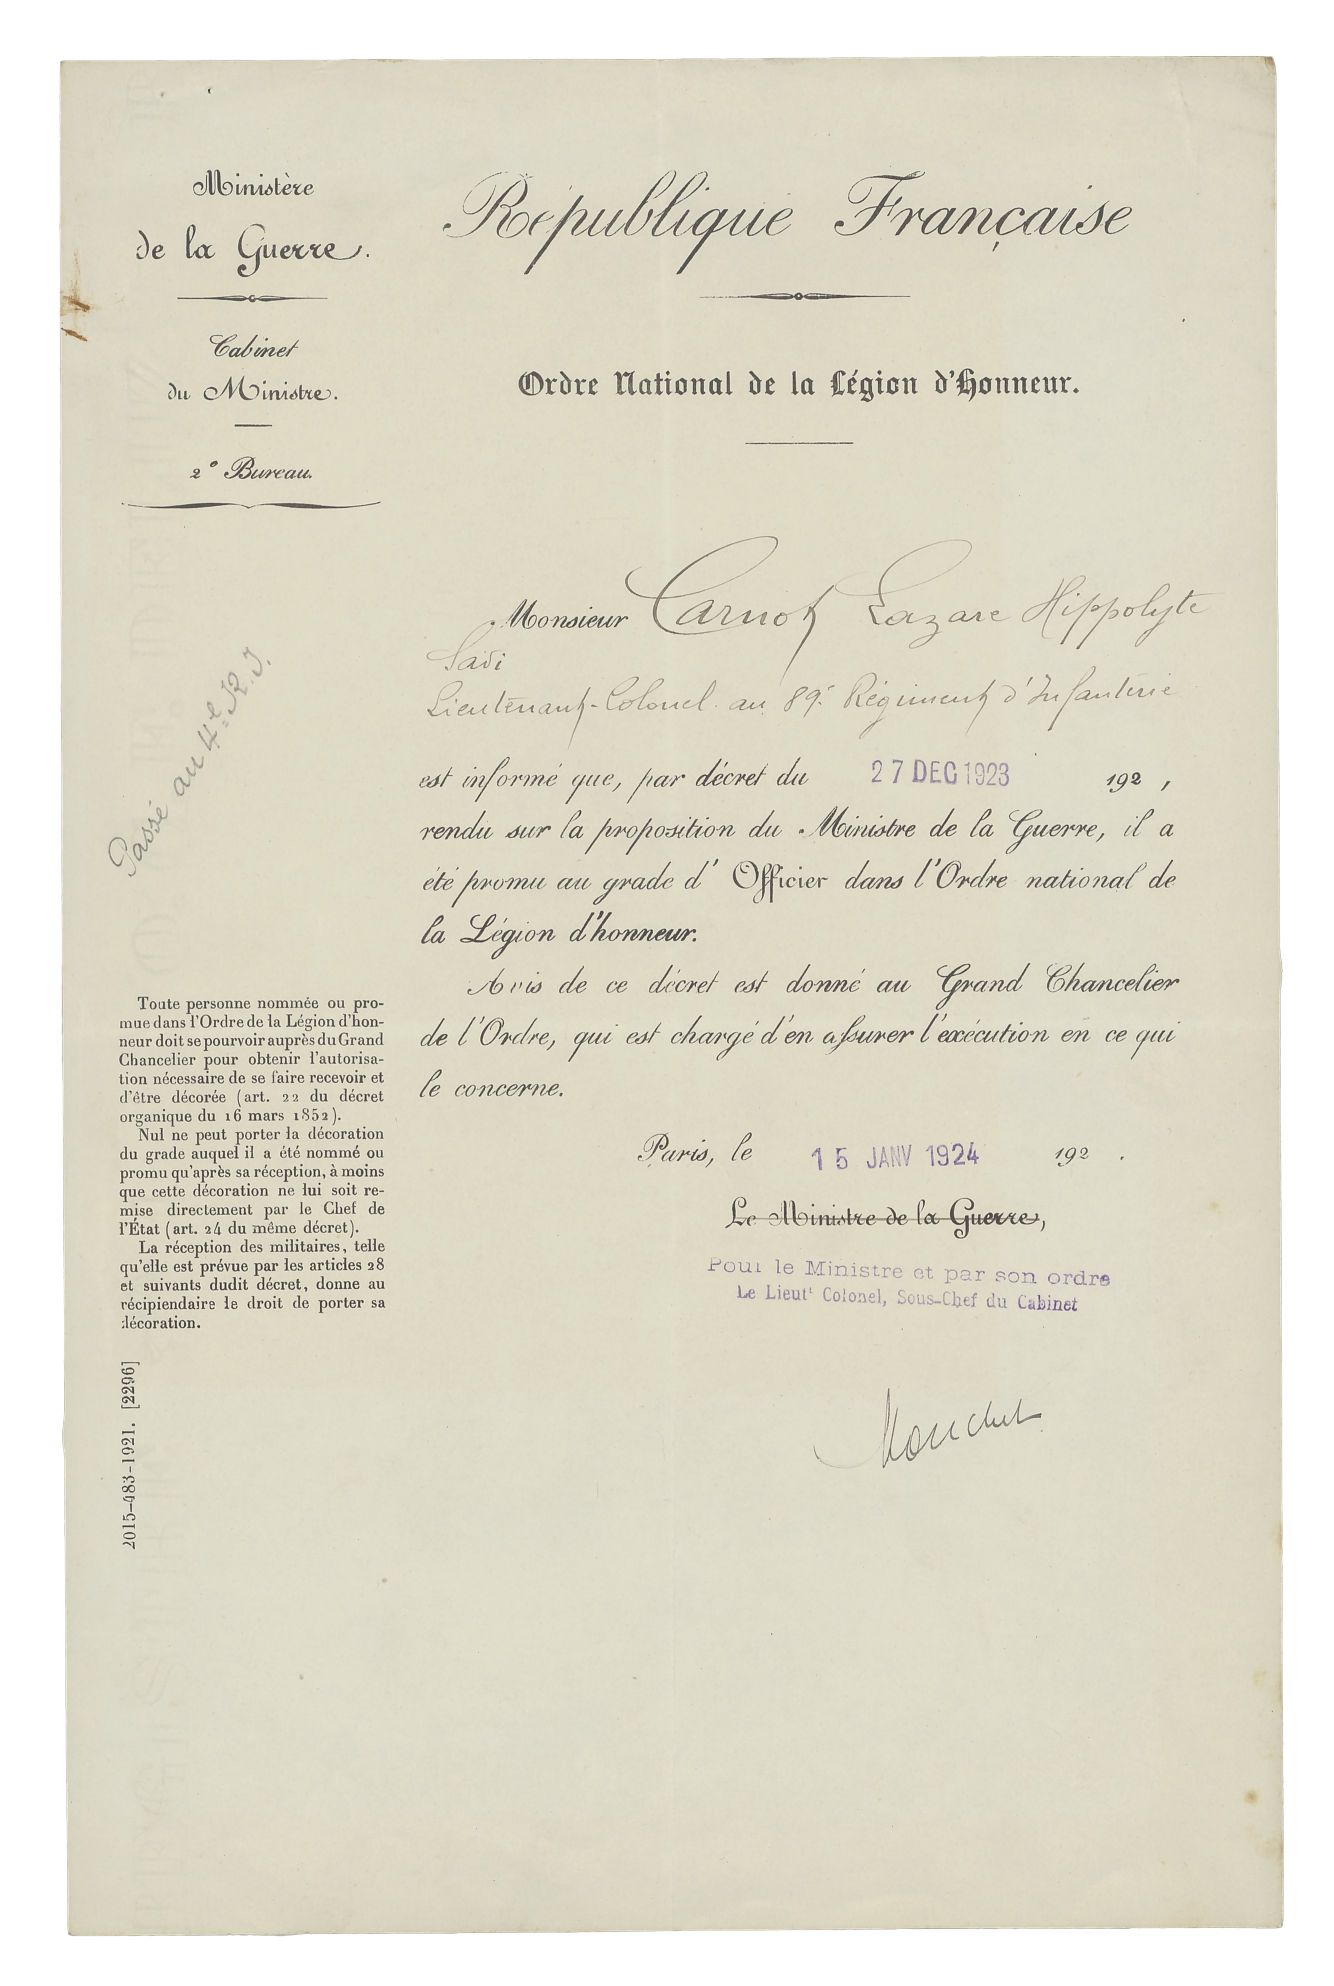 Ministère
de la Guerre.
Cabinet
du Ministre.
2e Bureau.
République Française
Ordre National de la Légion d'Honneur.
Monsieur Carnot Lazare Hippolyte
Sadi
Lieutenant-Colonel au 89e Régiment d'Infanterie
est informé que, par décret du 27 DEC 1923 192 ,
rendu sur la proposition du Ministre de la Guerre, il a
été promu au grade d' Officier dans l'Ordre national de
la Légion d'honneur.
Avis de ce décret est donné au Grand Chancelier
de l'Ordre, qui est chargé d'en assurer l'exécution en ce qui
le concerne.
Paris, le 15 JANV 1924 192 .
Le Ministre de la Guerre,
Pour le Ministre et par son ordre
Le Lieutt Colonel, Sous-Chef du Cabinet
Passé au 4e R.I.
Toute personne nommée ou pro-
mue dans l'Ordre de la Légion d'hon-
neur doit se pourvoir auprès du Grand
Chancelier pour obtenir l'autorisa-
tion nécessaire de se faire recevoir et
d'être décorée (art. 22 du décret
organique du 16 mars 1852).
Nul ne peut porter la décoration
du grade auquel il a été nommé ou
promu qu'après sa réception, à moins
que cette décoration ne lui soit re-
mise directement par le Chef de
l'État (art. 24 du même décret).
La réception des militaires, telle
qu'elle est prévue par les articles 28
et suivants dudit décret, donne au
récipiendaire le droit de porter sa
décoration.
2015-483-1921. [2296]